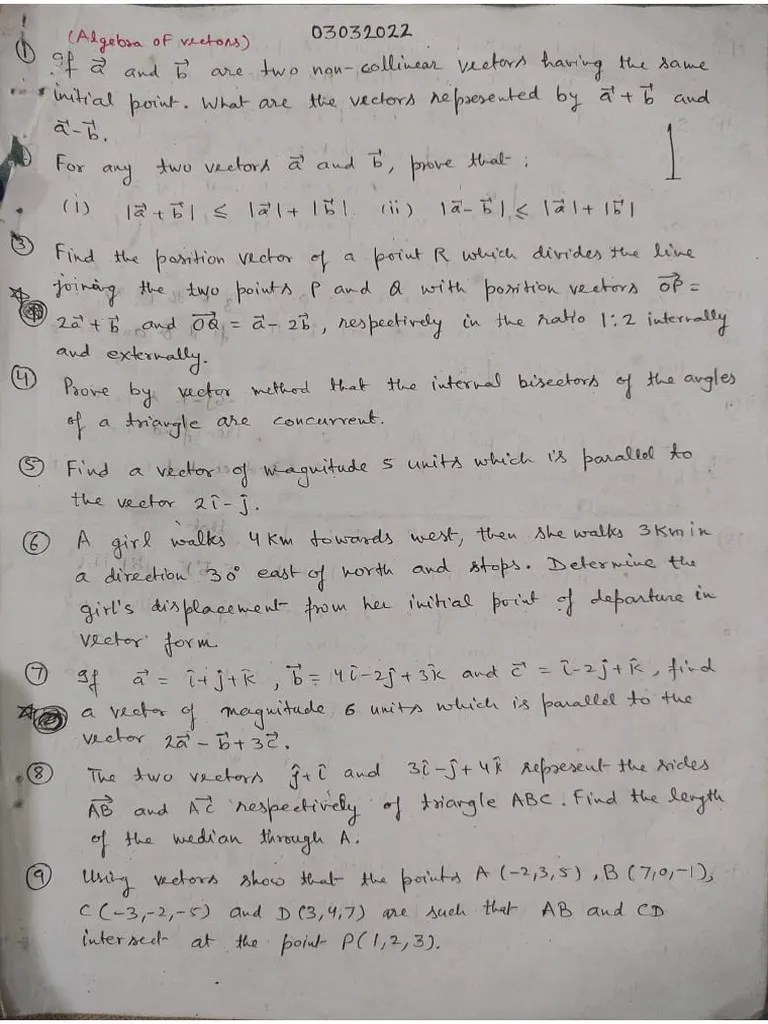 (Algebra of vectors) 03032022
① If a⃗ and b⃗ are two non-collinear vectors having the same
initial point. What are the vectors represented by a⃗ + b⃗ and
a⃗ - b⃗.
For any two vectors a⃗ and b⃗, prove that :
(i) |a⃗ + b⃗| ≤ |a⃗| + |b⃗| (ii) |a⃗ - b⃗| ≤ |a⃗| + |b⃗|
1
③ Find the position vector of a point R which divides the line
joining the two points P and Q with position vectors OP⃗ =
2a⃗ + b⃗ and OQ⃗ = a⃗ - 2b⃗, respectively in the ratio 1:2 internally
and externally.
④ Prove by vector method that the internal bisectors of the angles
of a triangle are concurrent.
⑤ Find a vector of magnitude 5 units which is parallel to
the vector 2î - ĵ.
⑥ A girl walks 4 km towards west, then she walks 3 km in
a direction 30° east of north and stops. Determine the
girl's displacement from her initial point of departure in
vector form.
⑦ If a⃗ = î + ĵ + k̂, b⃗ = 4î - 2ĵ + 3k̂ and c⃗ = î - 2ĵ + k̂, find
a vector of magnitude 6 units which is parallel to the
vector 2a⃗ - b⃗ + 3c⃗.
⑧ The two vectors ĵ + î and 3î - ĵ + 4k̂ represent the sides
AB⃗ and AC⃗ respectively of triangle ABC. Find the length
of the median through A.
⑨ Using vectors show that the points A(-2,3,5), B(7,0,-1),
C(-3,-2,-5) and D(3,4,7) are such that AB and CD
intersect at the point P(1,2,3).